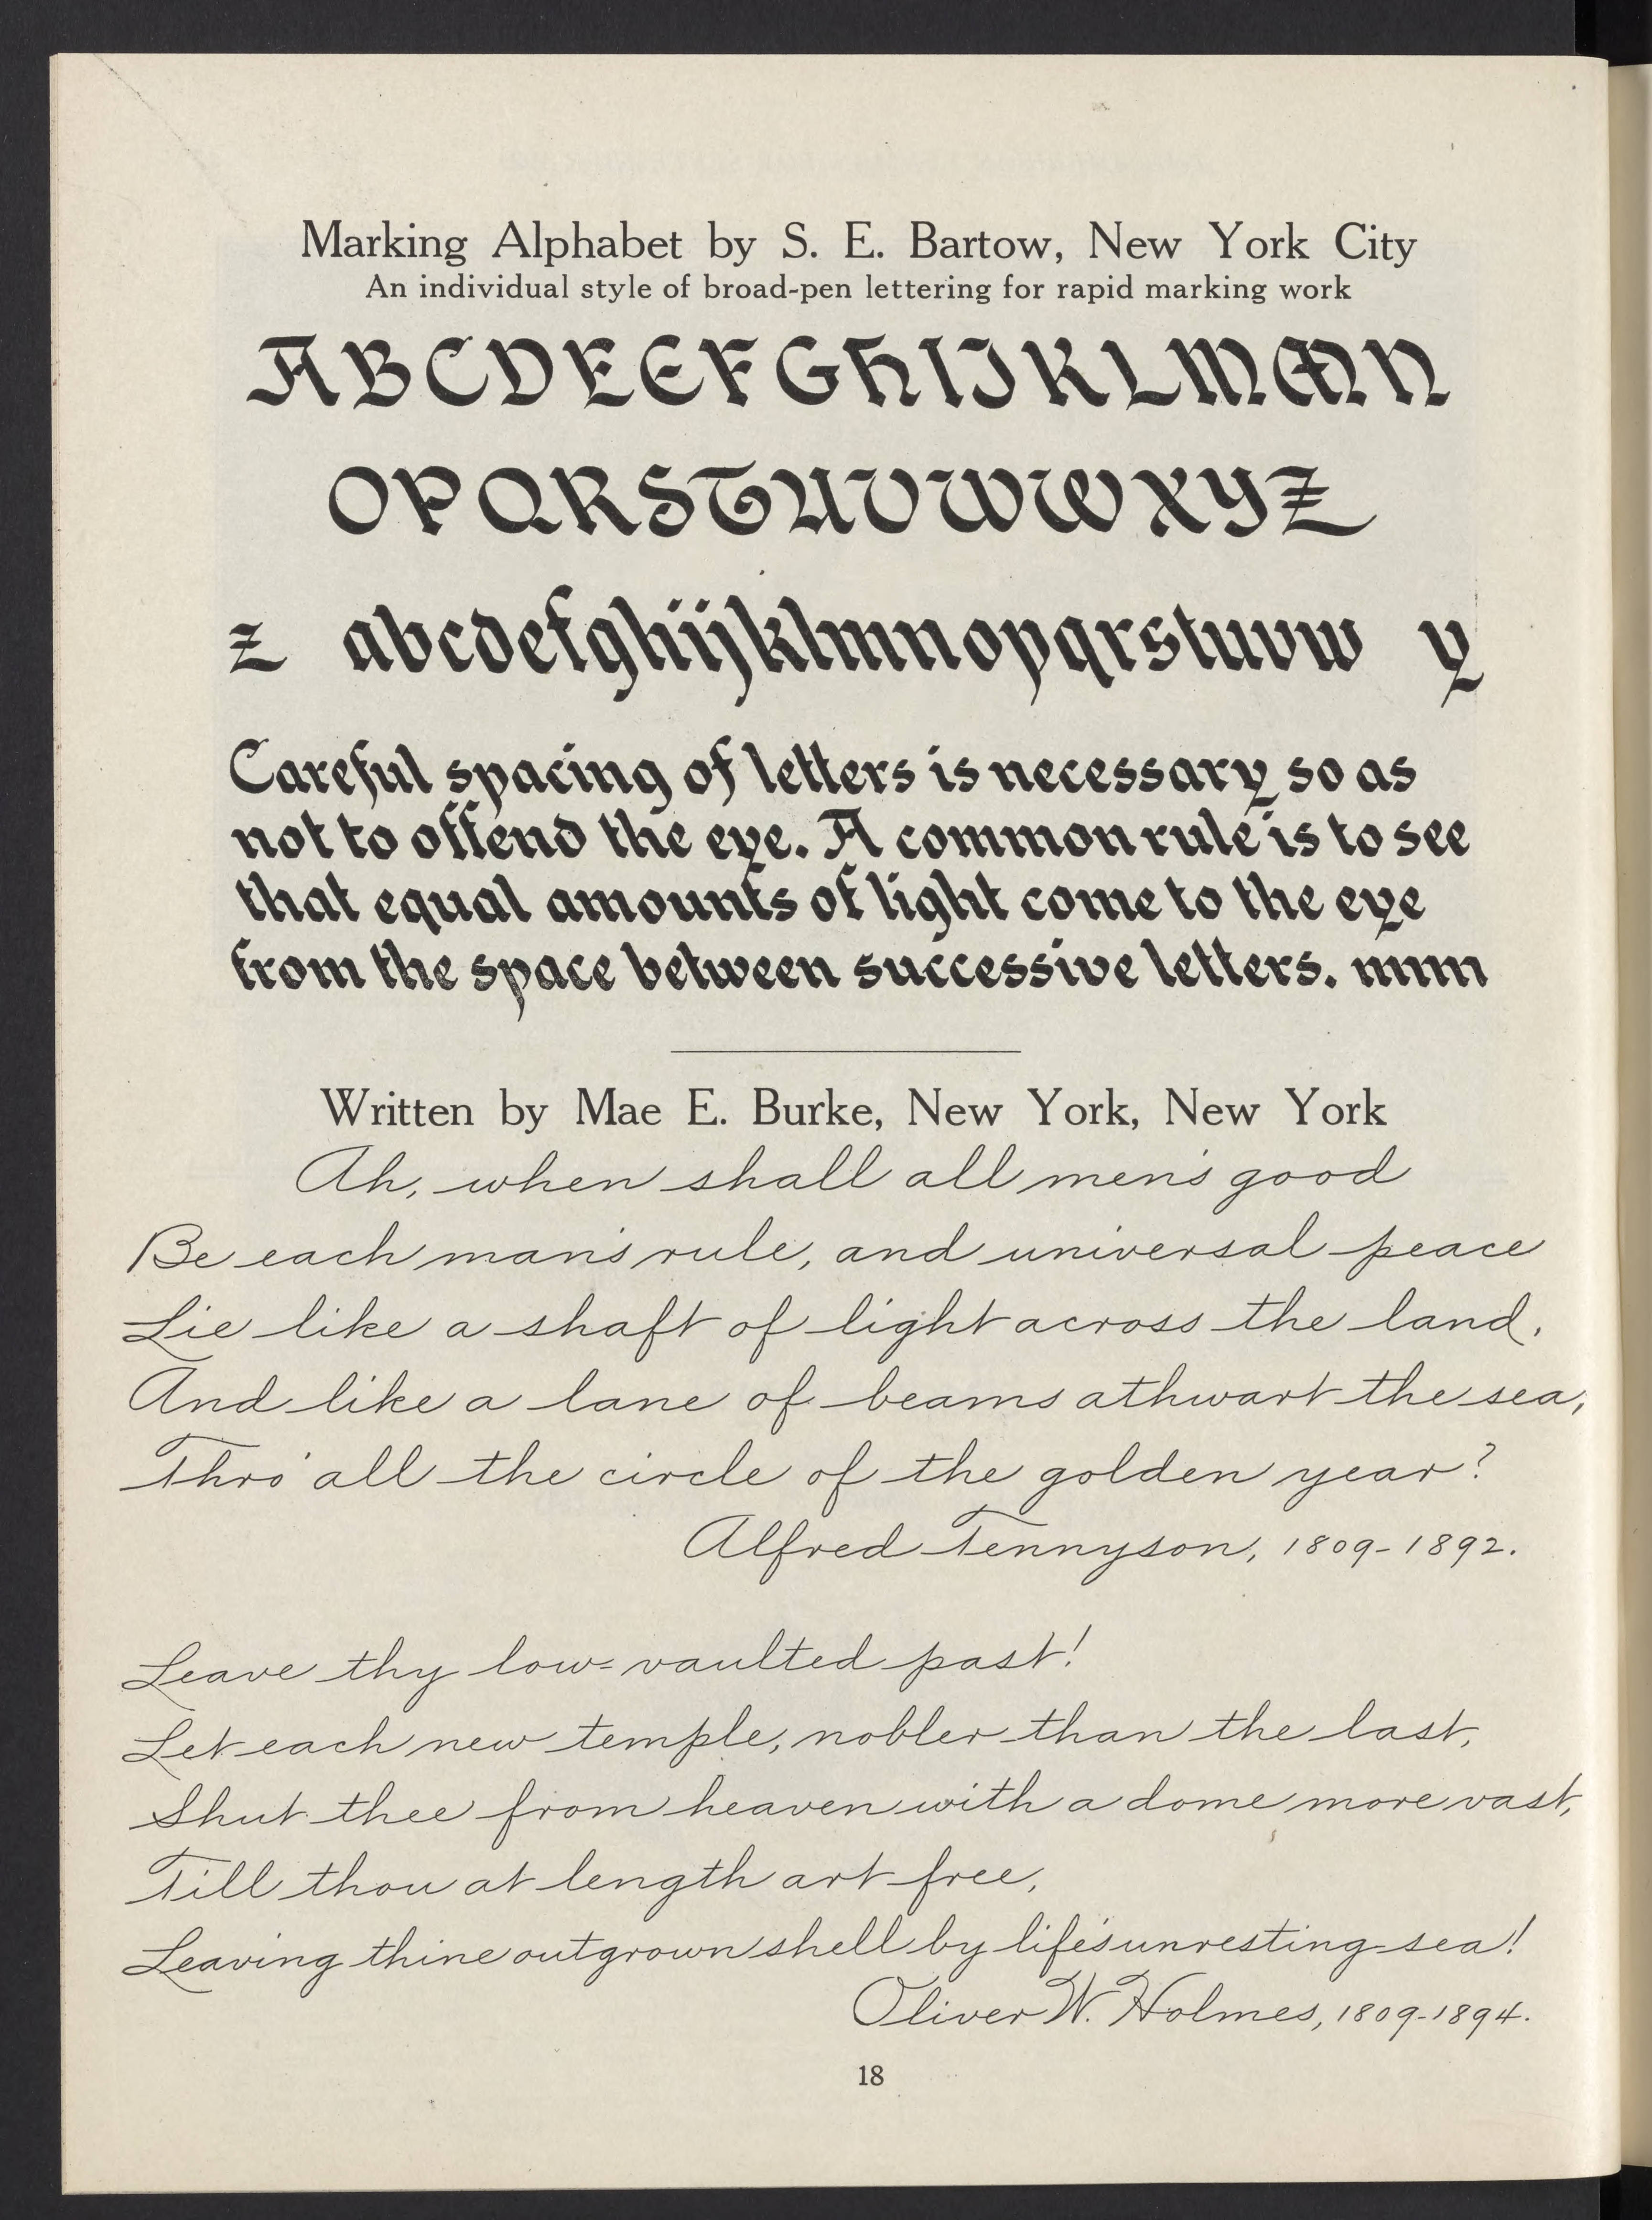 Marking Alphabet by S. E. Bartow, New York City
An individual style of broad-pen lettering for rapid marking work
A B C D E E F G H I J K L M M N
O P Q R S T U V W W X Y Z
z abcdefghijklmnopqrstuvw y
Careful spacing of letters is necessary so as
not to offend the eye. A common rule is to see
that equal amounts of light come to the eye
from the space between successive letters. mnm
Written by Mae E. Burke, New York, New York
Ah, when shall all men's good
Be each man's rule, and universal peace
Lie like a shaft of light across the land,
And like a lane of beams athwart the sea,
Thro' all the circle of the golden year?
Alfred Tennyson, 1809-1892.
Leave thy low-vaulted past!
Let each new temple, nobler than the last,
Shut thee from heaven with a dome more vast,
Till thou at length art free,
Leaving thine outgrown shell by life's unresting sea!
Oliver W. Holmes, 1809-1894.
18